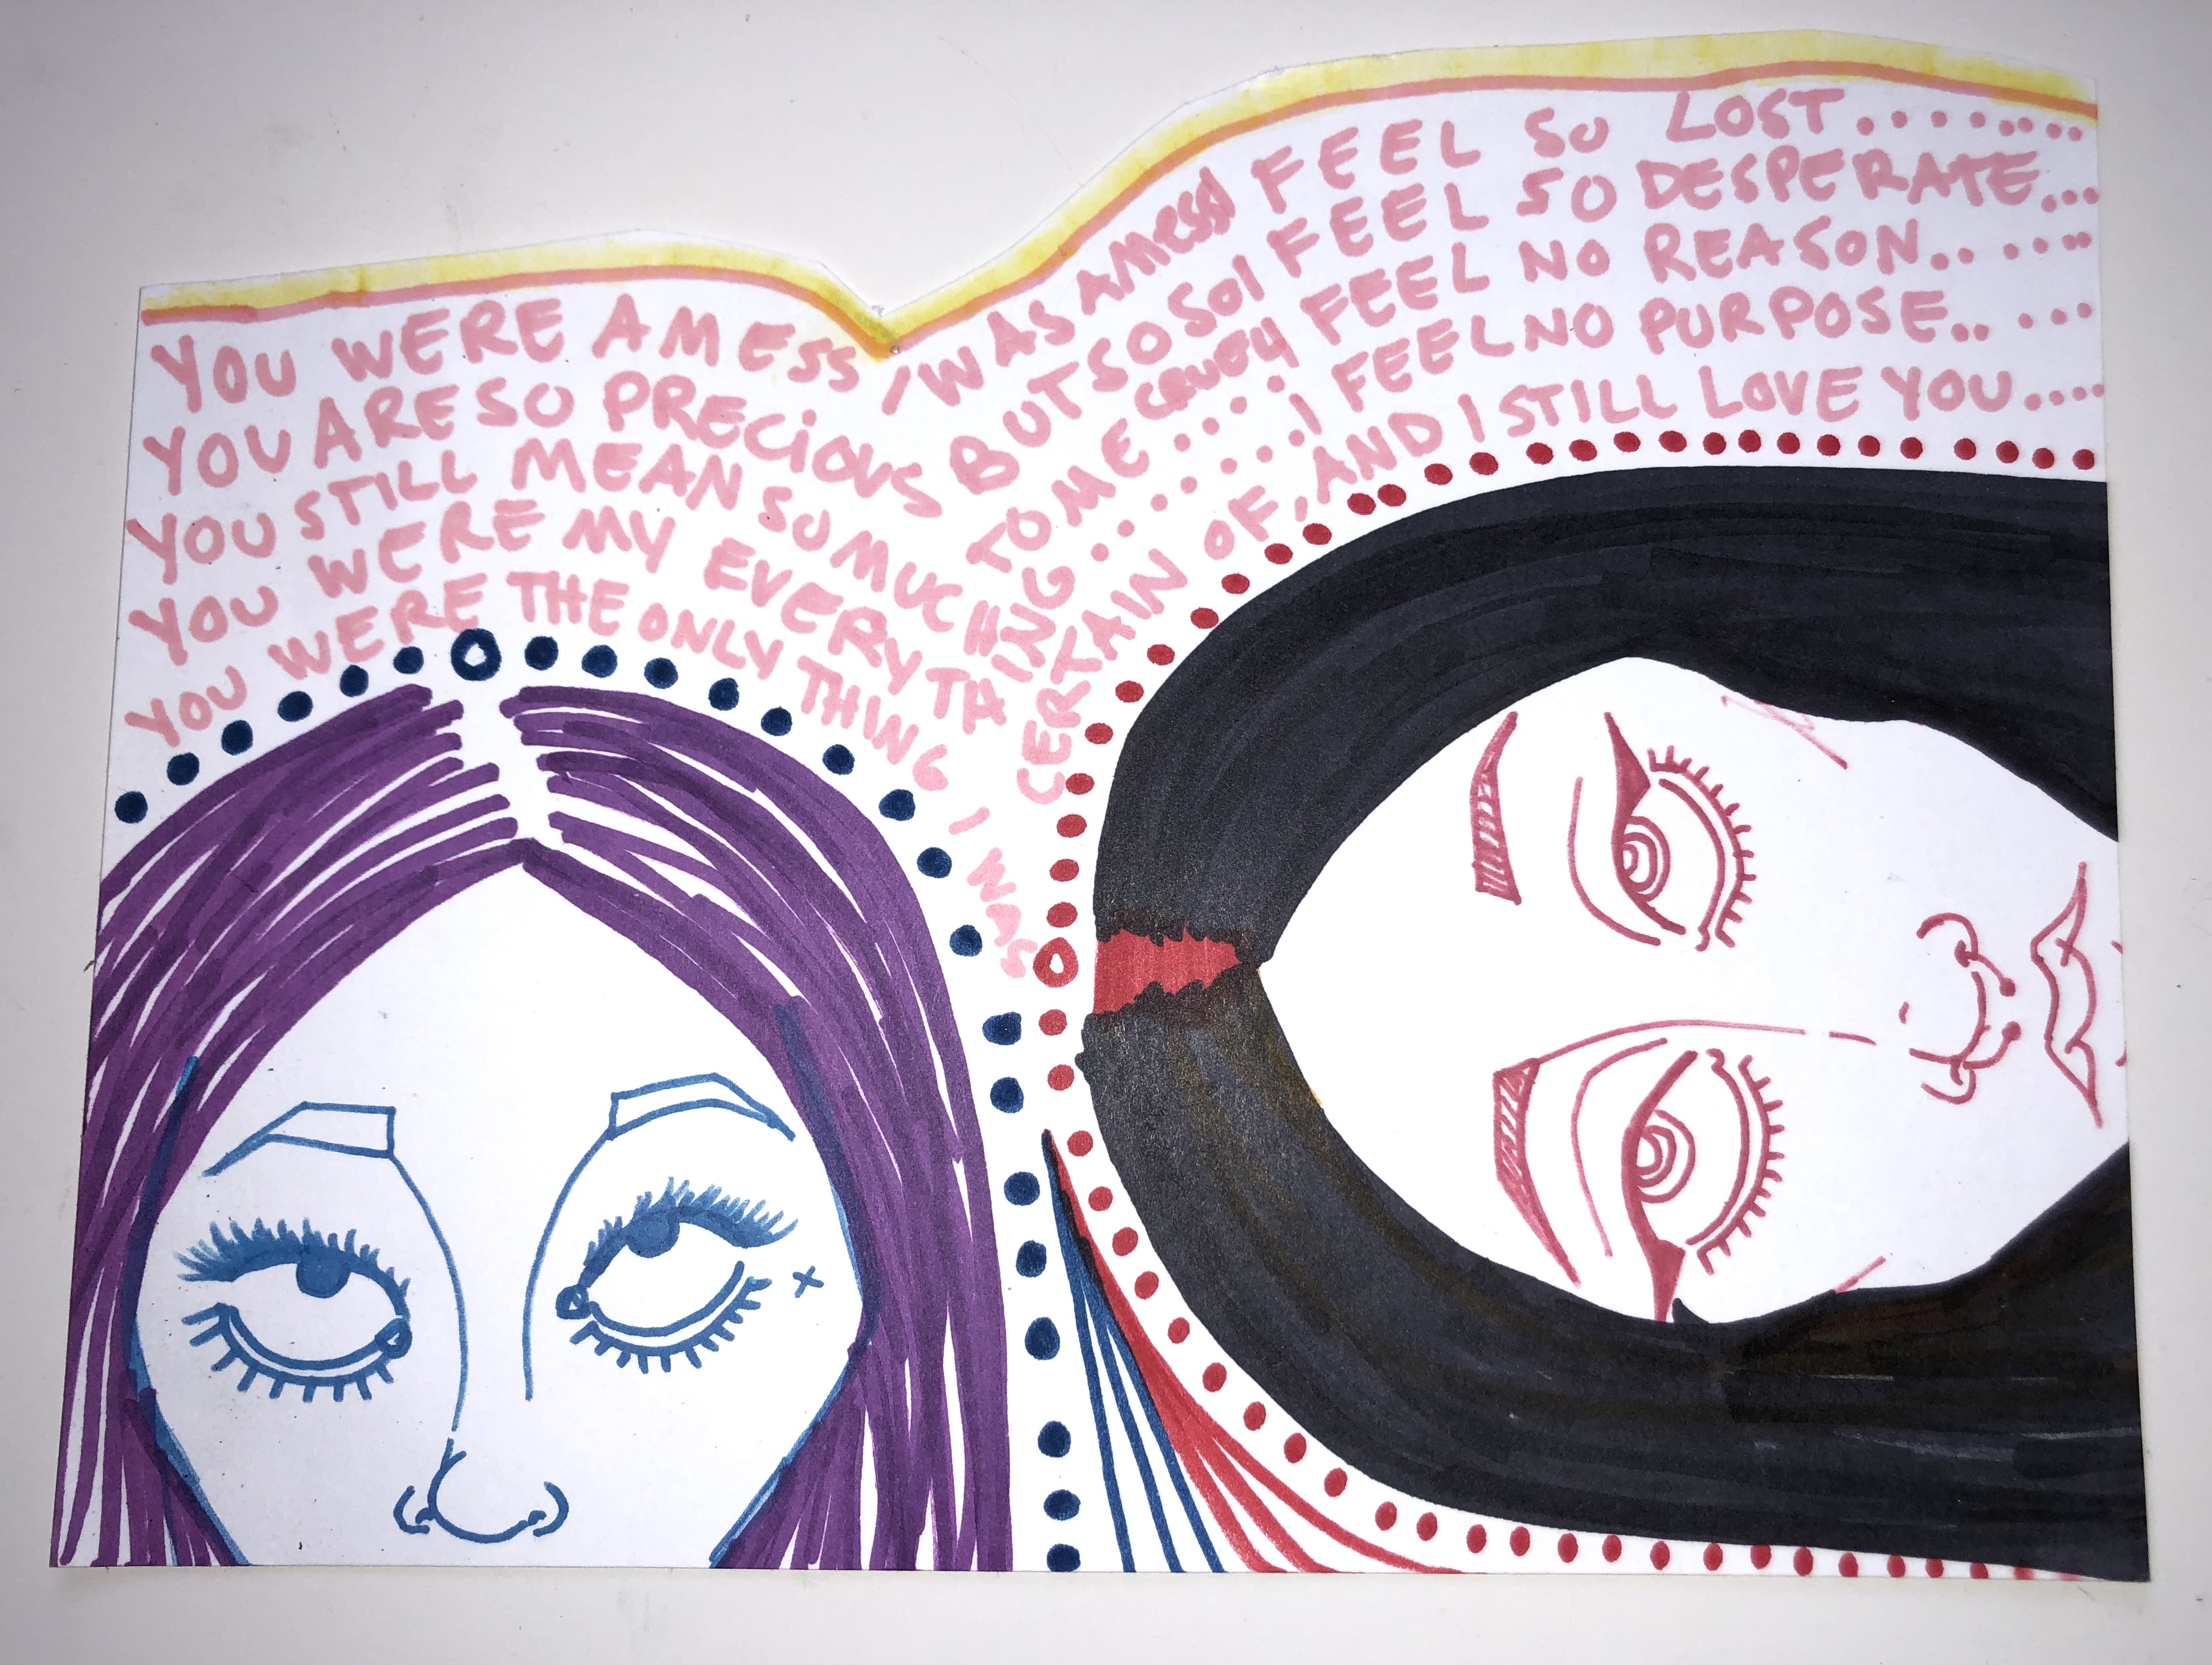 YOU WERE A MESS I WAS A MESS I FEEL SO LOST........
YOU ARE SO PRECIOUS BUT SO SO I FEEL SO DESPERATE...
YOU STILL MEAN SO MUCH TO ME.... FEEL NO REASON......
YOU WERE MY EVERYTHING......... I FEEL NO PURPOSE.....
YOU WERE THE ONLY THING I WAS CERTAIN OF, AND I STILL LOVE YOU....